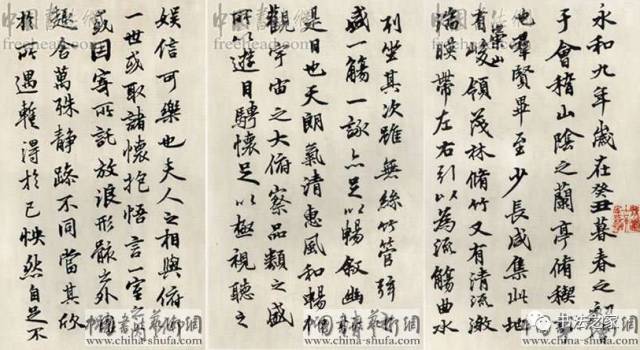 永和九年歲在癸丑暮春之初
于會稽山陰之蘭亭脩稧
也羣賢畢至少長咸集此地
有崇山峻領茂林脩竹又有清流激
湍暎帶左右引以為流觴曲水
列坐其次雖無絲竹管弦之
盛一觴一詠亦足以暢敘幽
是日也天朗氣清惠風和暢仰
觀宇宙之大俯察品類之盛
所以遊目騁懷足以極視聽之
娛信可樂也夫人之相與俯仰
一世或取諸懷抱悟言一室之內
或因寄所託放浪形骸之外雖
趣舍萬殊靜躁不同當其欣
於所遇暫得於己怏然自足不
中國書法藝術網
china-shufa.com
中國書法藝術網
china-shufa.com
china-shufa.com
freehead.com
freehead.com
freehead.com
书法之家